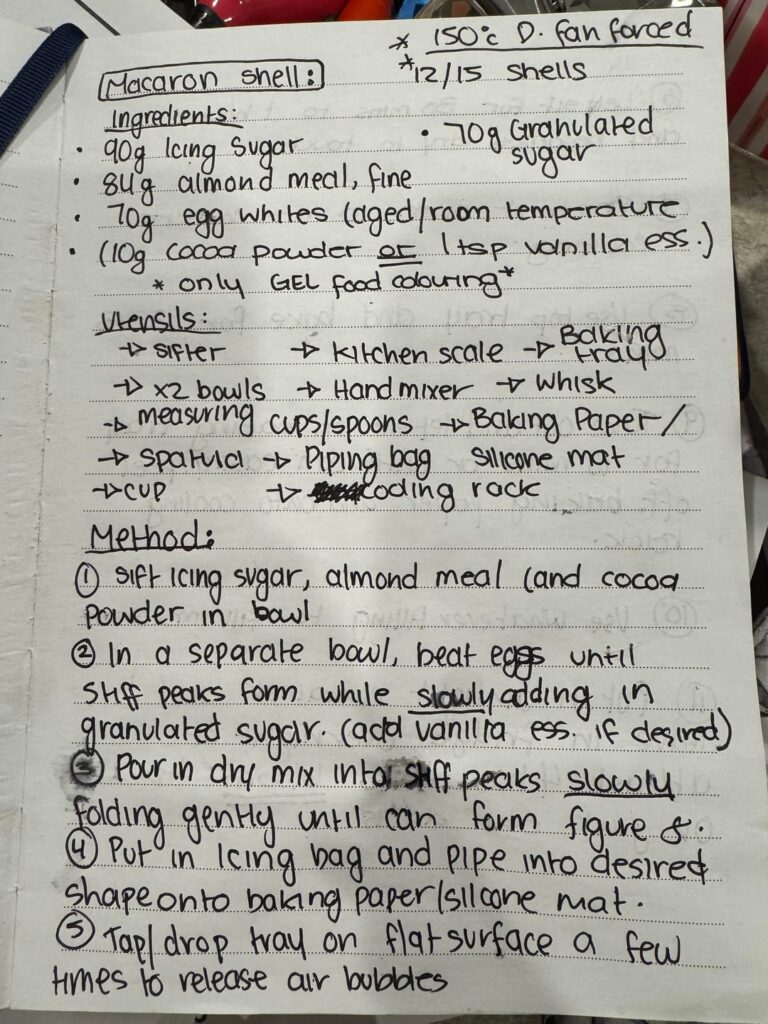 * 150°c D. fan forced
Macaron shell:
* 12/15 shells
Ingredients:
• 90g Icing Sugar
• 70g Granulated
sugar
• 84g almond meal, fine
• 70g egg whites (aged/room temperature
• (10g cocoa powder or 1 tsp vanilla ess.)
* only GEL food colouring*
Utensils:
→ sifter → kitchen scale → Baking
tray
→ x2 bowls → Hand mixer → whisk
→ measuring cups/spoons → Baking Paper/
→ spatula → Piping bag silicone mat
→ cup → cooling rack
Method:
① sift icing sugar, almond meal (and cocoa
powder in bowl
② In a separate bowl, beat eggs until
stiff peaks form while slowly adding in
granulated sugar. (add vanilla ess. if desired)
③ Pour in dry mix into stiff peaks slowly
folding gently until can form figure 8.
④ Put in icing bag and pipe into desired
shape onto baking paper/silcone mat.
⑤ Tap/drop tray on flat surface a few
times to release air bubbles